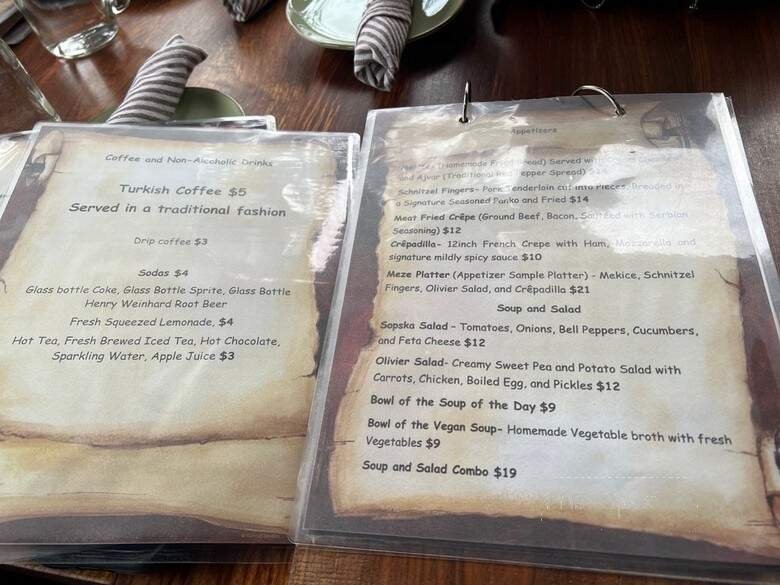 Coffee and Non-Alcoholic Drinks
Turkish Coffee $5
Served in a traditional fashion
Drip coffee $3
Sodas $4
Glass bottle Coke, Glass Bottle Sprite, Glass Bottle
Henry Weinhard Root Beer
Fresh Squeezed Lemonade, $4
Hot Tea, Fresh Brewed Iced Tea, Hot Chocolate,
Sparkling Water, Apple Juice $3
Appetizers
(Homemade Fried Bread) Served with
and Ajvar (Traditional Red Pepper Spread)
Schnitzel Fingers- Pork Tenderloin cut into Pieces, Breaded in
a Signature Seasoned Panko and Fried $14
Meat Fried Crêpe (Ground Beef, Bacon, Sautéed with Serbian
Seasoning) $12
Crêpadilla- 12inch French Crepe with Ham, Mozzarella and
signature mildly spicy sauce $10
Meze Platter (Appetizer Sample Platter) - Mekice, Schnitzel
Fingers, Olivier Salad, and Crêpadilla $21
Soup and Salad
Sopska Salad - Tomatoes, Onions, Bell Peppers, Cucumbers,
and Feta Cheese $12
Olivier Salad- Creamy Sweet Pea and Potato Salad with
Carrots, Chicken, Boiled Egg, and Pickles $12
Bowl of the Soup of the Day $9
Bowl of the Vegan Soup- Homemade Vegetable broth with fresh
Vegetables $9
Soup and Salad Combo $19